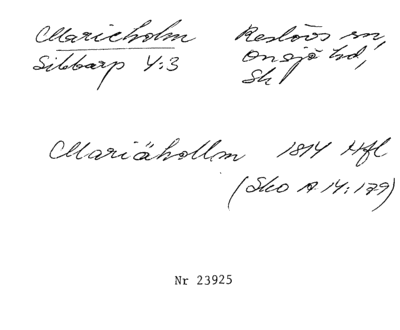 Marieholm Reslövs sn,
Sibbarp 4:3 Onsjö hd,
Sk
Mariähollm 1814 Hfl
(Sko A 14:179)
Nr 23925